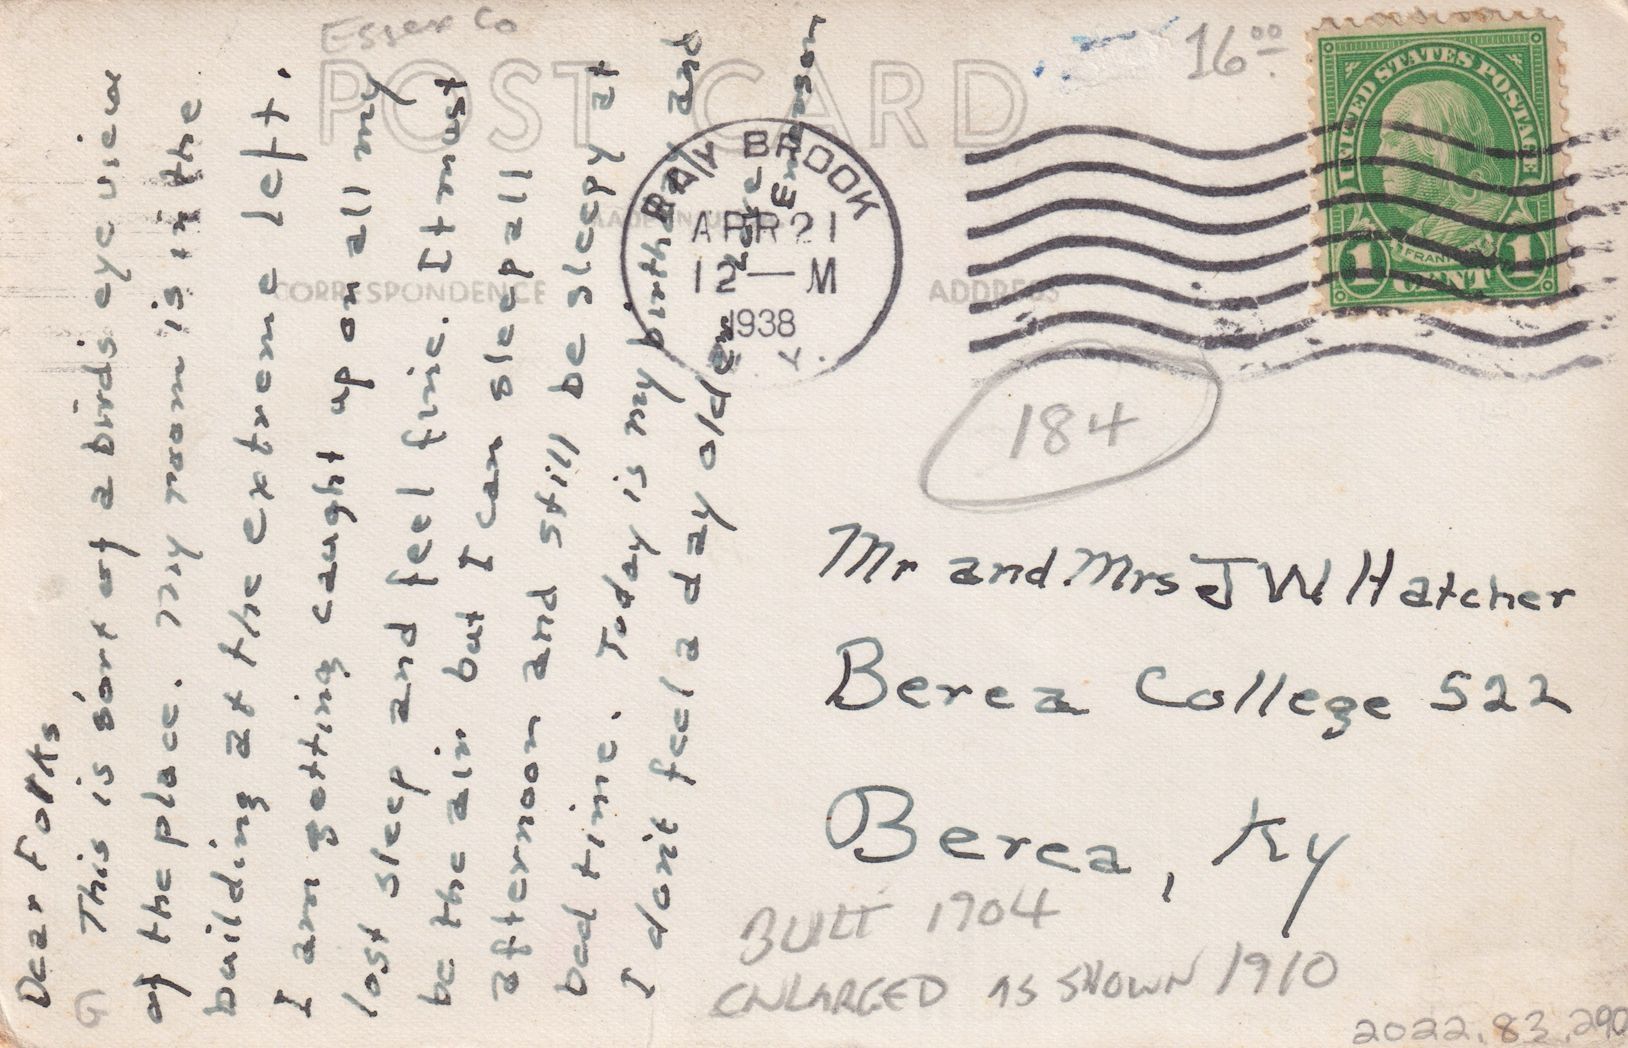 Essex Co
16.00
POST CARD
UNITED STATES POSTAGE
FRANKLIN
1 CENT 1
RAY BROOK
APR 21
12—M
1938
Y.
CORRESPONDENCE
ADDRESS
184
Dear Folks
This is sort of a birds eye view
of the place. My room is in the
building at the extreme left.
I am getting caught up on all my
lost sleep and feel fine. It must
be the air but I can sleep all
afternoon and still be sleepy at
bed time. Today is my birthday and
I don't feel a day older
Emerson
Mr and Mrs J W Hatcher
Berea College 522
Berea, Ky
BUILT 1904
ENLARGED AS SHOWN 1910
G
2022.83.290